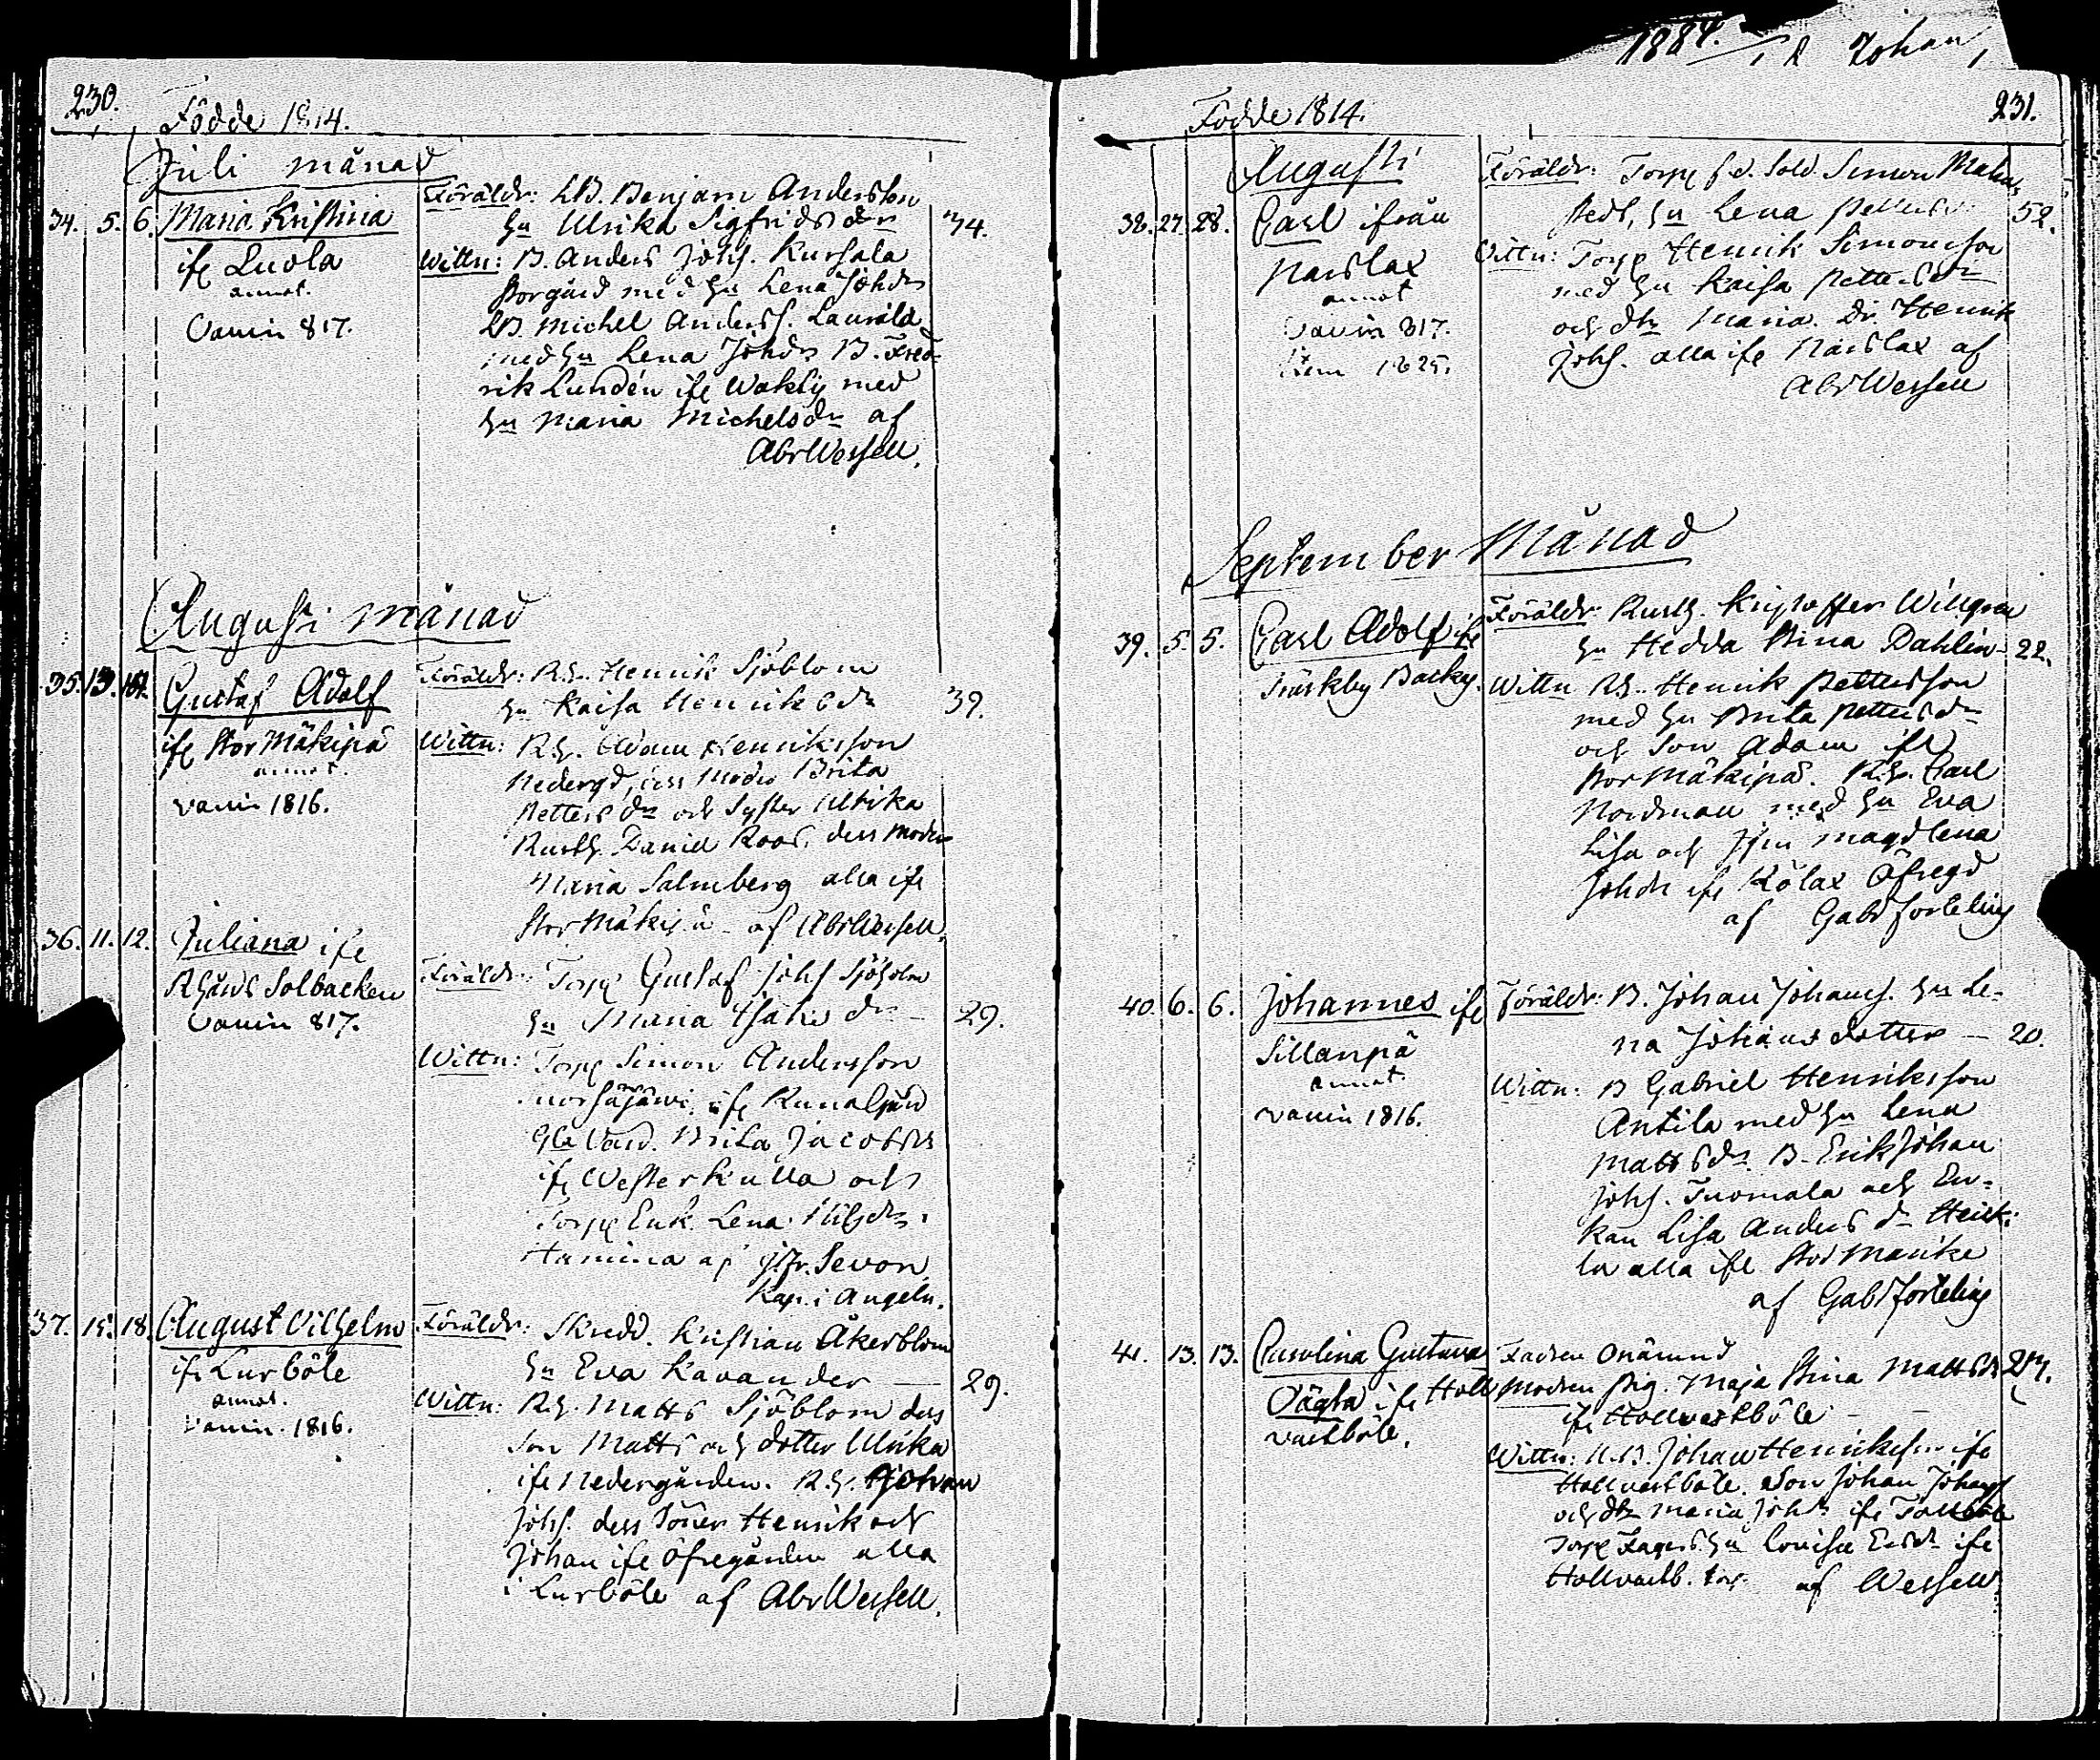 230.
Födde 1814.
Juli månad
34. 5. 6. Maria Kristina
ifr Luola
annot.
Vaccin 817.
Föräldr: LB. Benjam Andersson
hu Ulrika Sigfridsdr 34.
Wittn: B. Anders Johs. Kursala
Storgård med hu Lena Johdr
LB Michel Anderss. Laurila
med hu Lena Johdr B. Fred-
rik Lundén ifr Wakby med
hu Maria Michelsdr af
Abr Wessell.
Augusti månad
35. 13. Gustaf Adolf
ifr Stor Mäkipä
annot.
vaccin 1816.
Föräldr: R.h. Henrik Sjöblom
hu Kaisa Henriksdr 39.
Wittn: R.h. Adam Henriksson
Nedergd, dess Moder Brita
Pettersdr och Syster Ulrika
Rusth. Daniel Roos, dess moder
Maria Salmberg alla ifr
Stor Mäkipä af Abr Wessell.
36. 11. 12. Juliana ifr
Solbacken
Vaccin 817.
Föräldr: Torp Gustaf Johs Sjöholm
hu Maria Isaksdr 29.
Wittn: Torp Simon Andersson
ifr
Brita Jacobsdr
ifr Westerkulla och
Torp Enk. Lena Nilsdr
af Sevon
Kap. i Angeln.
37. 15. 18. August Vilhelm
ifr Lurböle
annot.
Vaccin. 1816.
Föräldr: Skredd. Kristian Åkerblom
hu Eva Kavander — 29.
Wittn: R.h. Matts Sjöblom dess
son Matts och dotter Ulrika
ifr Nedergården. R.h. Johan
Johs. dess Söner Henrik och
Johan ifr Öfregården alla
i Lurböle af Abr Wessell.
1884.
Johan
231.
Födde 1814.
Augusti
38. 27. 28. Carl ifrån
Narslax
annot
Vaccin 817.
1825.
Föräldr: Torp f.d. Sold. Simon
hu Lena 52.
Wittn: Torp Henrik Simonsson
med hu Kaisa Pettersdr
och dtr Maria. Dr. Henrik
Johs. alla ifr Narslax af
Abr Wessell
September Månad
39. 5. 5. Carl Adolf ifr
Träskby Backby.
Föräldr: Rusth. Kristoffer Willgren
hu Hedda Stina Dahlin 22.
Wittn R.h. Henrik Pettersson
med hu Brita Pettersdr
och Son Adam ifr
Stor Mäkipä. R.h. Carl
Nordman med hu Eva
Lisa och Magdlena
Johdr ifr Kölax Öfregd
af Gabr Forteling
40. 6. 6. Johannes ifr
Sillanpä
annot.
vaccin 1816.
Föräldr: B. Johan Johanss. hu Le-
na Johansdotter — 20.
Wittn: B Gabriel Henriksson
Antila med hu Lena
Mattsdr. B. Erik Johan
Johs. Tuomala och En-
kan Lisa Andersdr Heik-
la alla ifr Stor Marike
af Gabr Forteling
41. 13. 13. Carolina Gustava
Oägta ifr Holl
vastböle.
Fadren Onämnd
Modren Pig. Maja Stina Mattsdr 24.
ifr Hollvastböle
Wittn: N.B. Johan Henriksson ifr
Hollvastböle. Son Johan Johans
och dtr Maria Johdr ifr Tollböle
Torp hu Lovisa Ersdr ifr
Hollvastb. torp af Wessell.